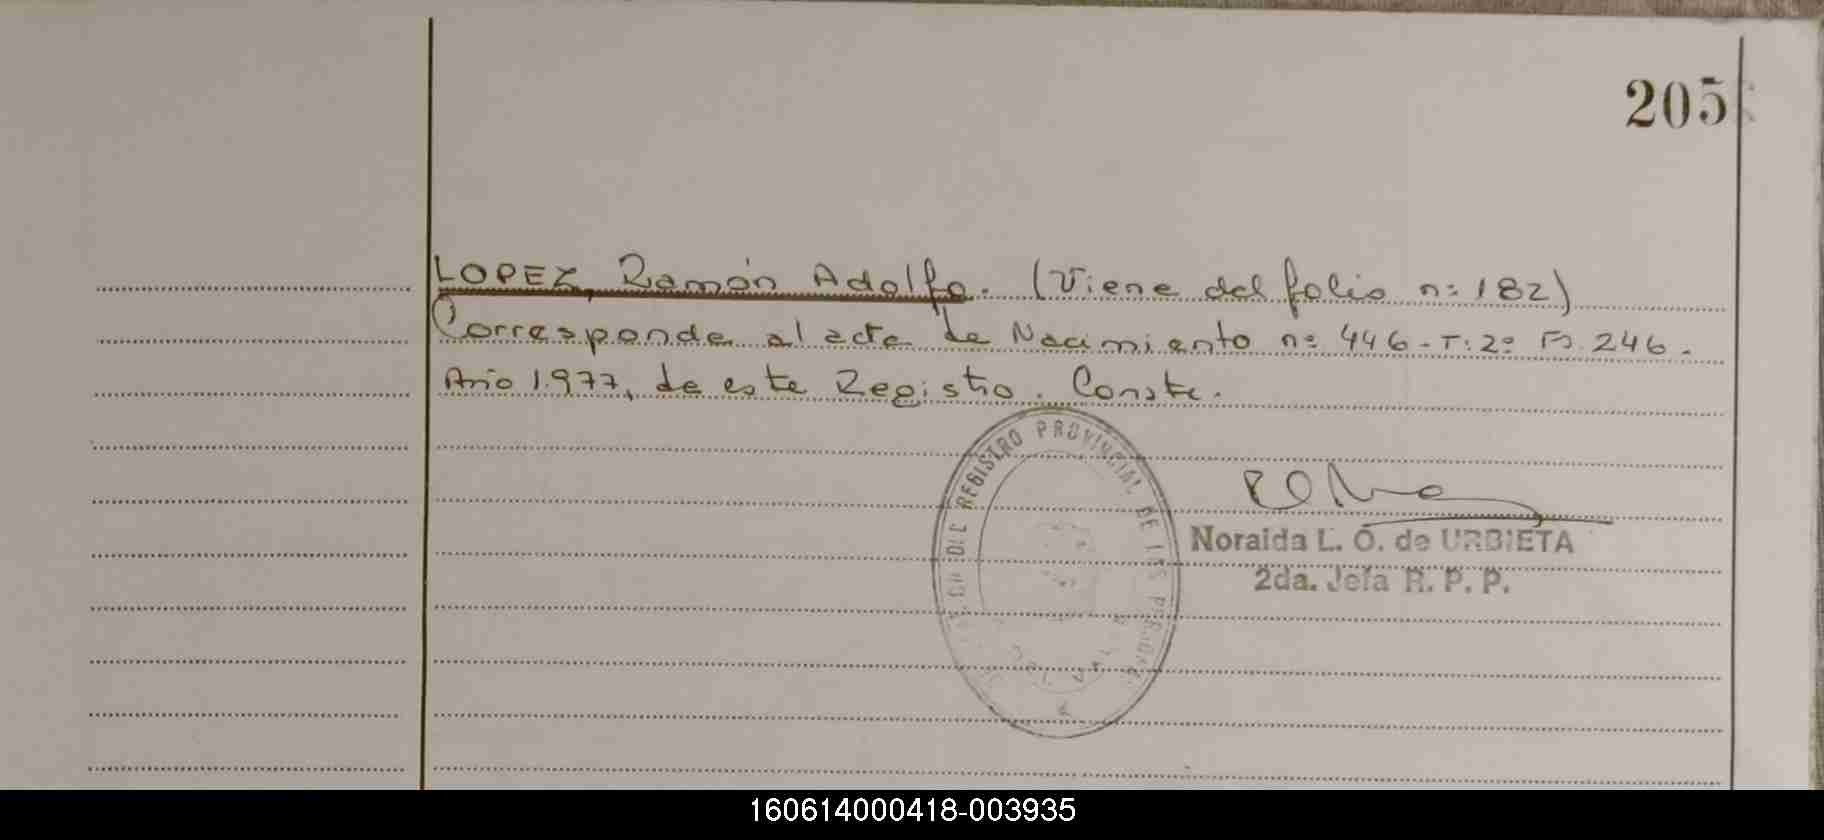 205
LOPEZ, Ramón Adolfo. (Viene del folio n: 182)
Corresponde al acta de Nacimiento nº 446 - T: 2º Fº 246.
Año 1.977, de este Registro. Conste.
DEL REGISTRO PROVINCIAL DE LAS PERSONAS
Noraida L. O. de URBIETA
2da. Jefa R. P. P.
160614000418-003935